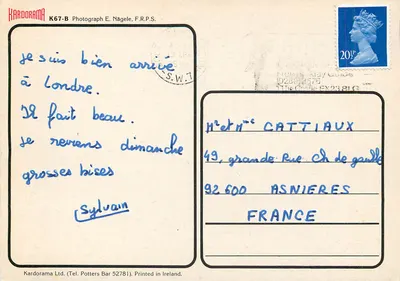 KARDORAMA K67-B Photograph E. Nägele, F.R.P.S.
je suis bien arrivé
à Londre.
Il fait beau.
je reviens dimanche
grosses bises
Sylvain
S.W.7
20½P
Mr et Mme CATTIAUX
49, grande Rue Ch de gaulle
92600 ASNIERES
FRANCE
Kardorama Ltd. (Tel. Potters Bar 52781). Printed in Ireland.